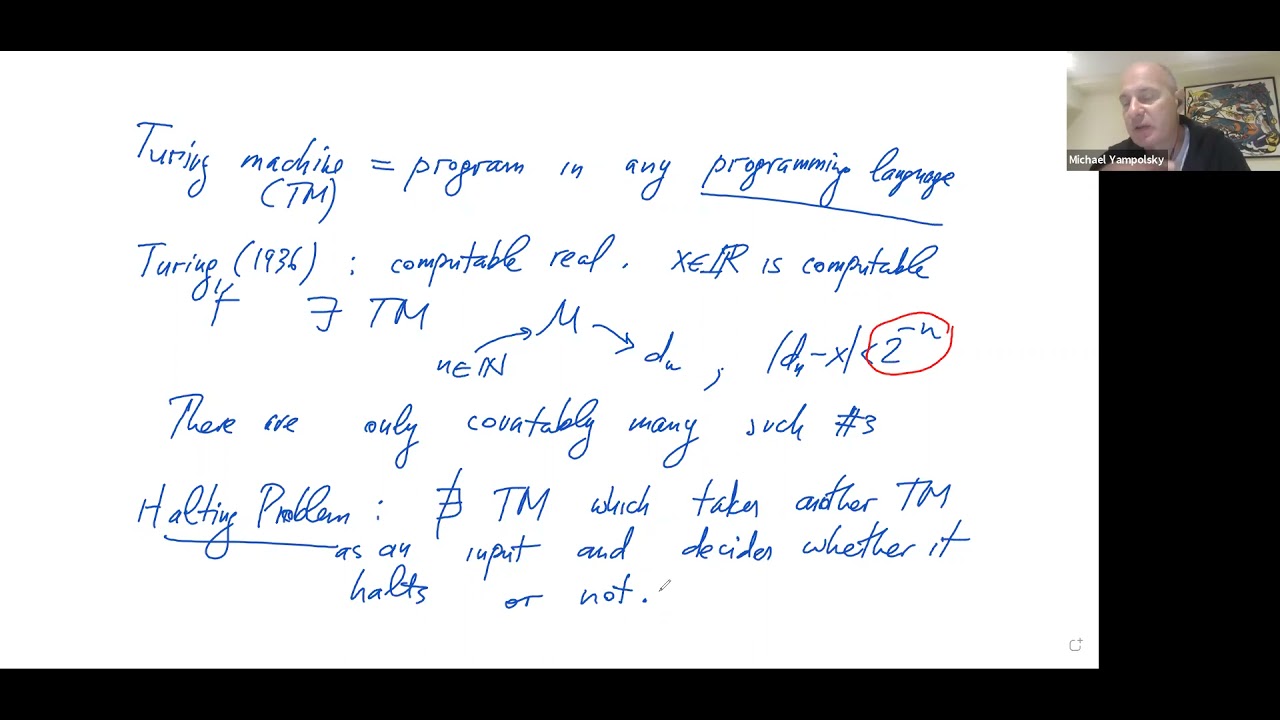 Turing machine = program in any programming language
(TM)
Turing (1936) : computable real. x∈ℝ is computable
if ∃ TM M
n∈ℕ dₙ ; |dₙ-x|<2⁻ⁿ
There are only countably many such #s
Halting Problem : ∄ TM which takes another TM
as an input and decides whether it
halts or not.
Michael Yampolsky